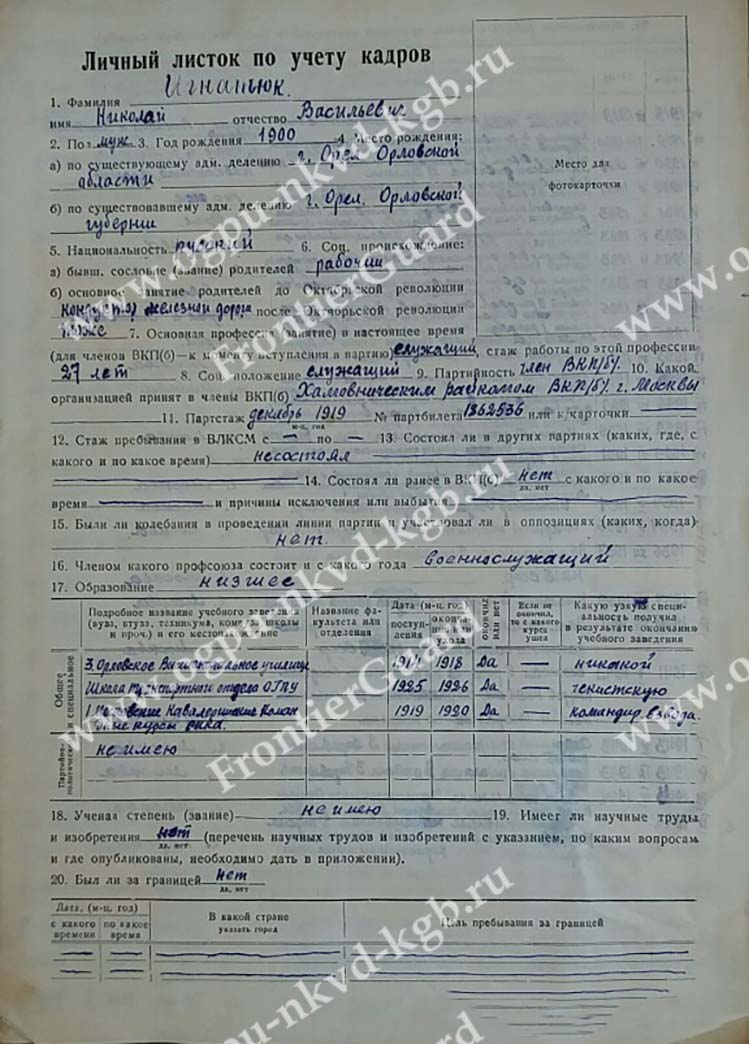 Личный листок по учету кадров
1. Фамилия Игнатюк.
имя Николай отчество Васильевич
2. Пол муж. 3. Год рождения 1900 4. Место рождения:
а) по существующему адм. делению г. Орел Орловской
области
б) по существовавшему адм. делению г. Орел. Орловской
губернии
5. Национальность русский 6. Соц. происхождение:
а) бывш. сословие (звание) родителей рабочий
б) основное занятие родителей до Октябрьской революции
кондуктор железной дорога после Октябрьской революции
тоже 7. Основная профессия (занятие) в настоящее время
Место для
фотокарточки
(для членов ВКП(б)—к моменту вступления в партию) служащий, стаж работы по этой профессии
27 лет 8. Соц. положение служащий 9. Партийность член ВКП/б/. 10. Какой
организацией принят в члены ВКП(б) Хамовническим райкомом ВКП/б/ г. Москвы
11. Партстаж декабрь 1919 № партбилета 1362536 или к/карточки
м-ц, год
12. Стаж пребывания в ВЛКСМ с — по — 13. Состоял ли в других партиях (каких, где, с
какого и по какое время) несостоял
14. Состоял ли ранее в ВКП(б) нет с какого и по какое
да, нет
время и причины исключения или выбытия
15. Были ли колебания в проведении линии партии и участвовал ли в оппозициях (каких, когда)
нет.
16. Членом какого профсоюза состоит и с какого года Военнослужащий
17. Образование низшее
Подробное название учебного заведения (вуза, втуза, техникума, комвуза, школы и проч.) и его местонахождение
Название факультета или отделения
Дата (м-ц, год)
поступления
окончания или ухода
окончил или нет
Если не окончил, то с какого курса ушел
Какую узкую специальность получил в результате окончания учебного заведения
Общее и специальное
3. Орловское училище 1911 1918 Да — никакой
Школа Транспортного отдела ОГПУ 1925 1926 Да — чекистскую
1. Московские Кавалерийские Коман 1919 1920 Да — командир взвода.
дные курсы РККА.
Партийно-политическое
не имею
18. Ученая степень (звание) не имею 19. Имеет ли научные труды
и изобретения нет (перечень научных трудов и изобретений с указанием, по каким вопросам
да, нет
и где опубликованы, необходимо дать в приложении).
20. Был ли за границей Нет
да, нет
Дата, (м-ц, год)
с какого времени
по какое время
В какой стране
указать город
Цель пребывания за границей
www.ogpu-nkvd-kgb.ru
FrontierGuard